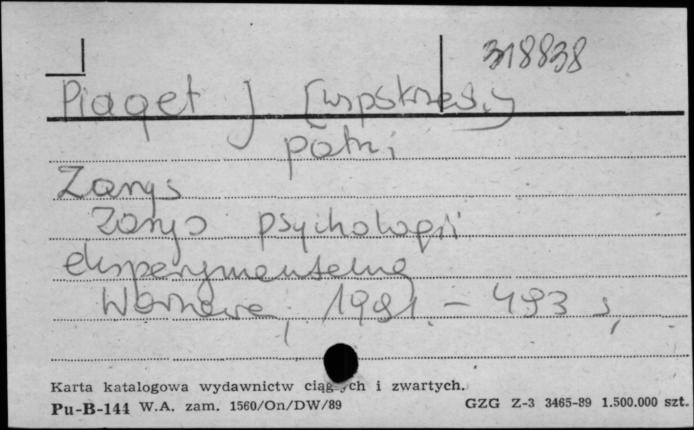 318838
Piaget J [wpskrzes.]
patrz:
Zarys
Zarys psychologii
eksperymentalne
Warszawa, 1981. - 493 s,
Karta katalogowa wydawnictw ciągłych i zwartych.
Pu-B-144 W.A. zam. 1560/On/DW/89 GZG Z-3 3465-89 1.500.000 szt.